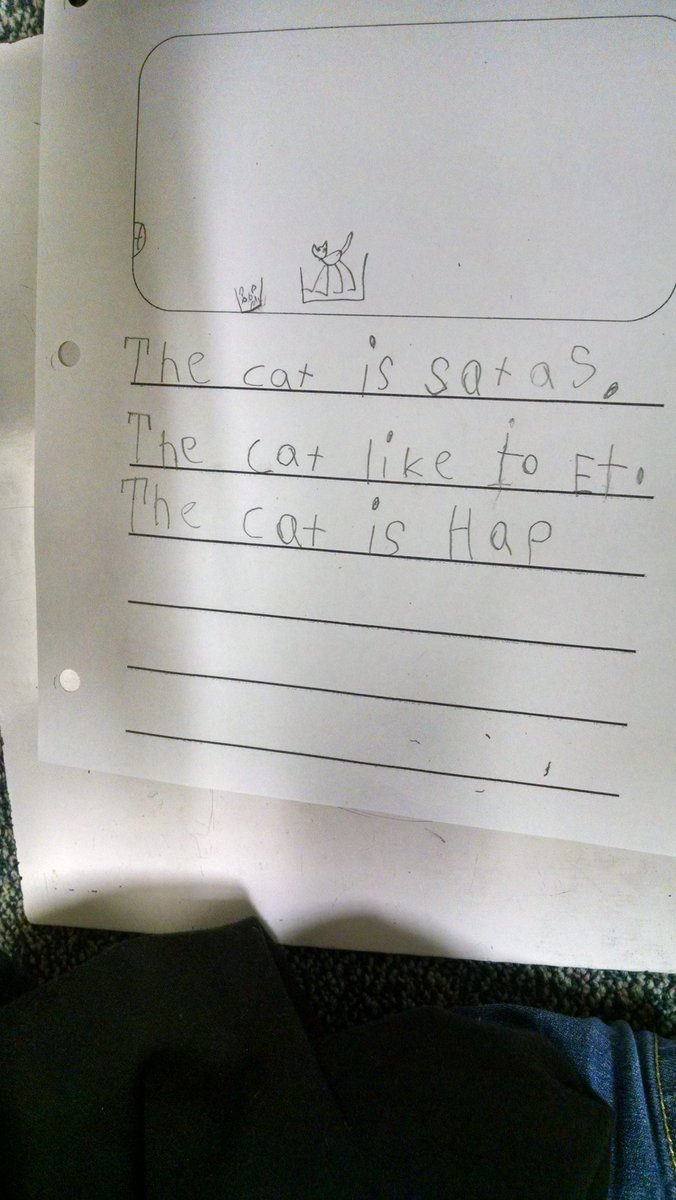 The cat is satas.
The cat like to Et.
The cat is Hap